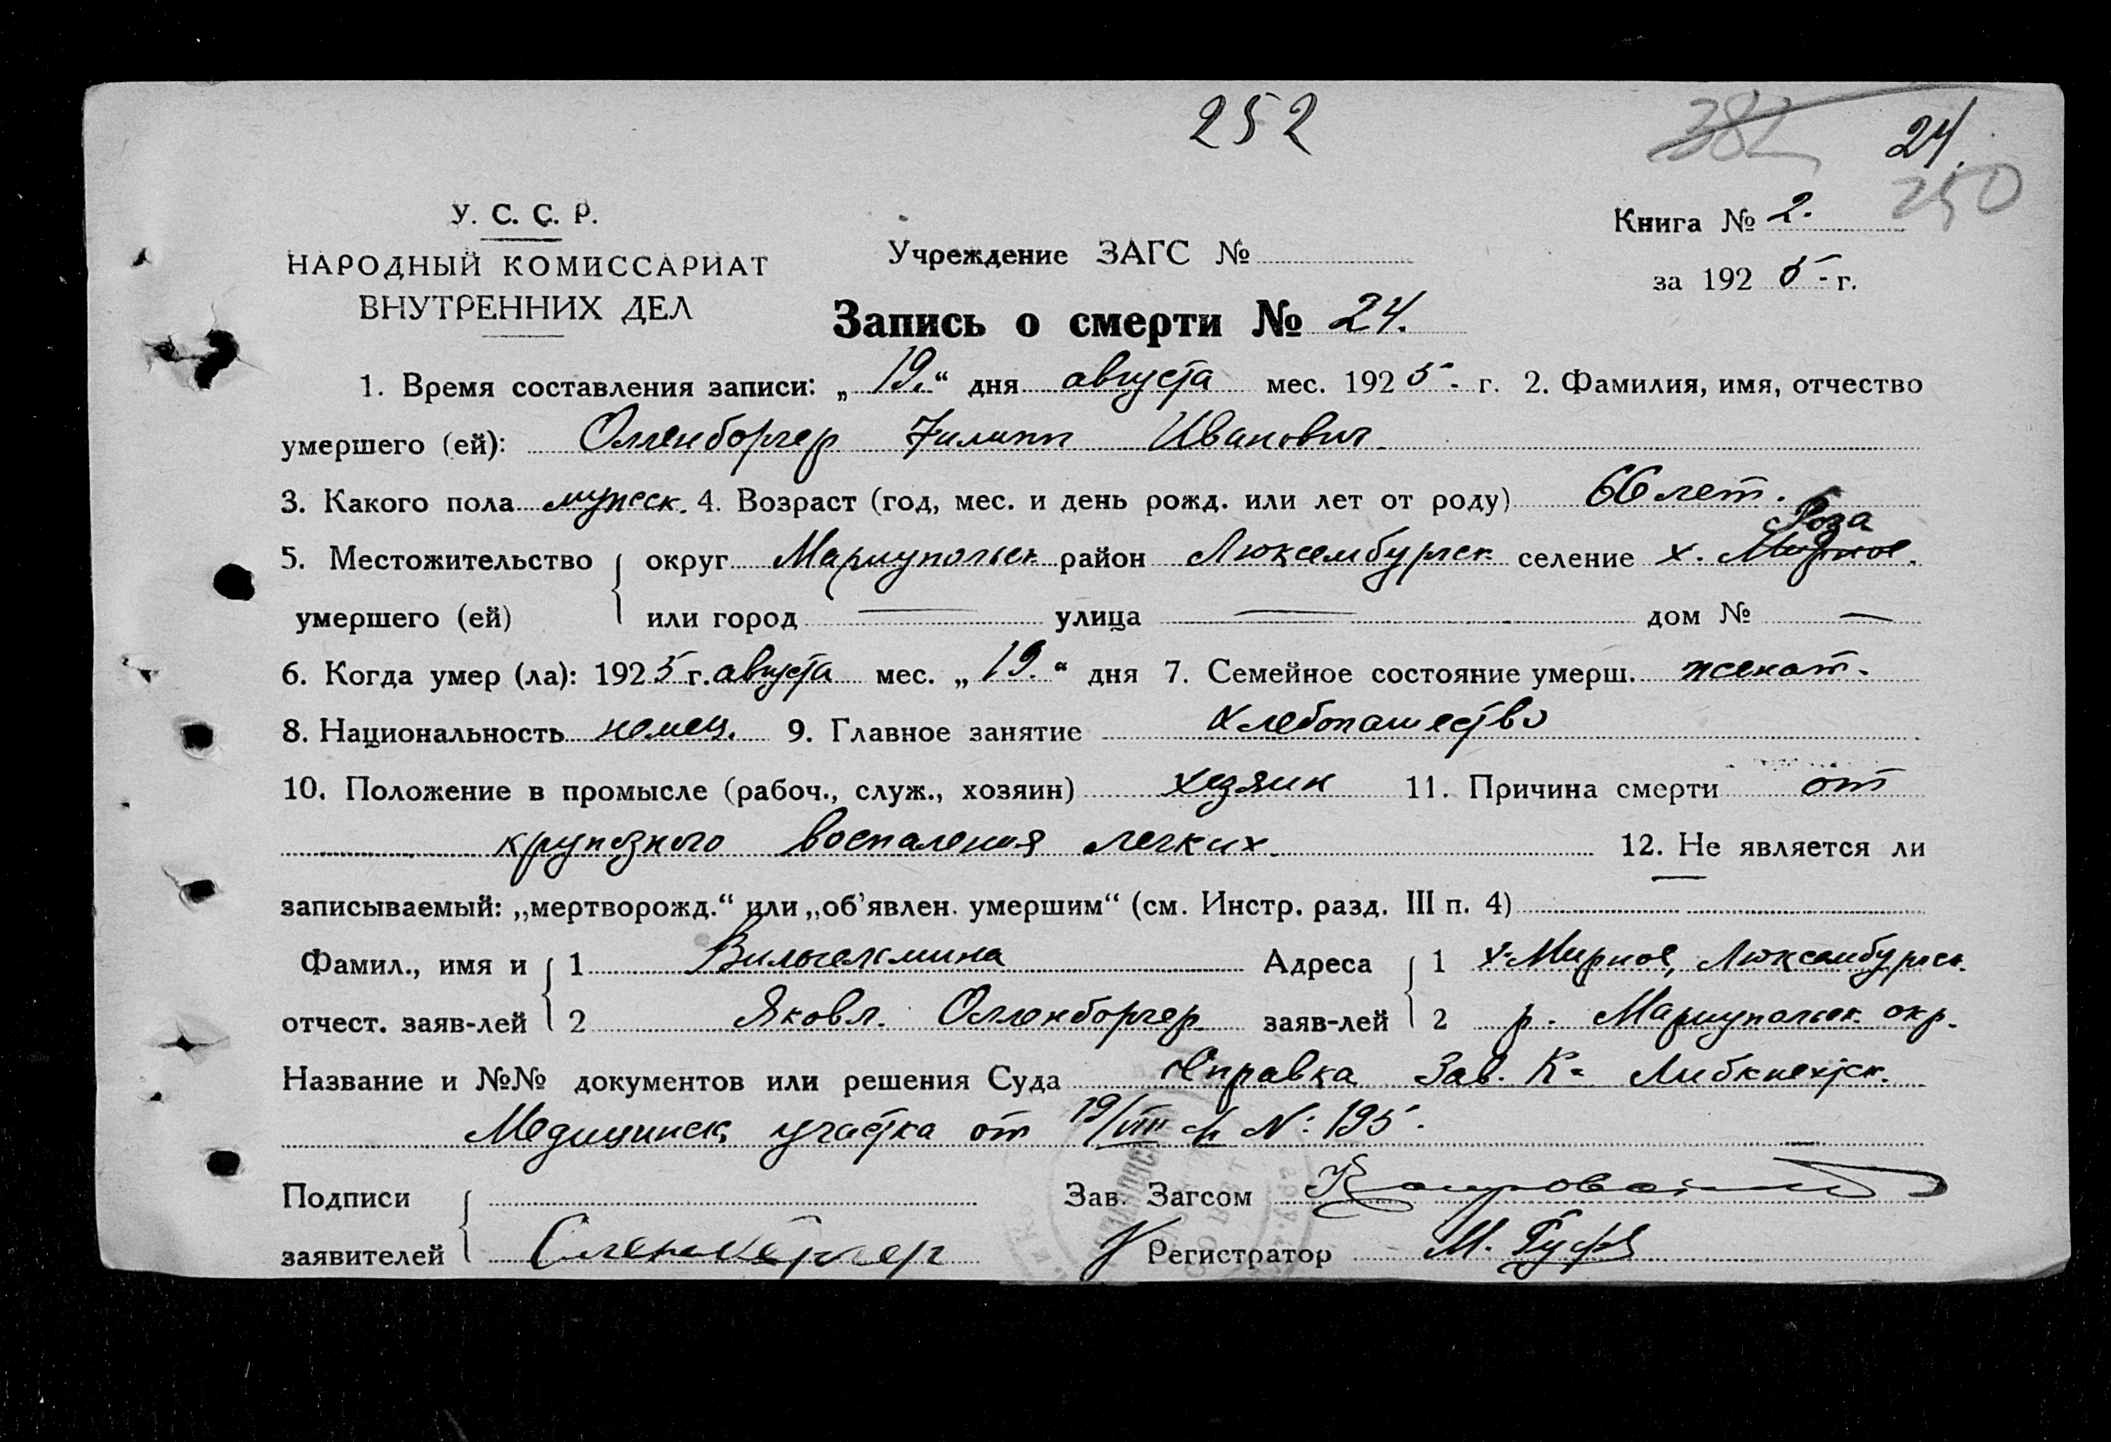 252
382
24.
250
У. С. С. Р.
НАРОДНЫЙ КОМИССАРИАТ
ВНУТРЕННИХ ДЕЛ
Учреждение ЗАГС №
Книга № 2.
за 1925 - г.
Запись о смерти № 24.
1. Время составления записи: „19.“ дня августа мес. 1925 - г. 2. Фамилия, имя, отчество
умершего (ей): Олленборгер Филипп Иванович
3. Какого пола мужск. 4. Возраст (год, мес. и день рожд. или лет от роду) 66 лет.
Роза
5. Местожительство округ Мариупольск район Люксембургск селение х. Мирное.
умершего (ей) или город — улица — дом № —
6. Когда умер (ла): 1925 г. августа мес. „19.“ дня 7. Семейное состояние умерш. женат.
8. Национальность немец. 9. Главное занятие хлебопашество
10. Положение в промысле (рабоч., служ., хозяин) хозяин 11. Причина смерти от
крупозного воспаления легких. 12. Не является ли
записываемый: „мертворожд.“ или „об'явлен. умершим“ (см. Инстр. разд. III п. 4)
Фамил., имя и 1 Вильгельмина Адреса 1 х. Мирное, Люксембургск.
отчест. заяв-лей 2 Яковл. Олленборгер заяв-лей 2 р. Мариупольск. окр.
Название и №№ документов или решения Суда Справка Зав. К- Либкнехтск.
Медицинск участка от 19/VIII N: 195.
Подписи Зав. Загсом
заявителей Регистратор М.